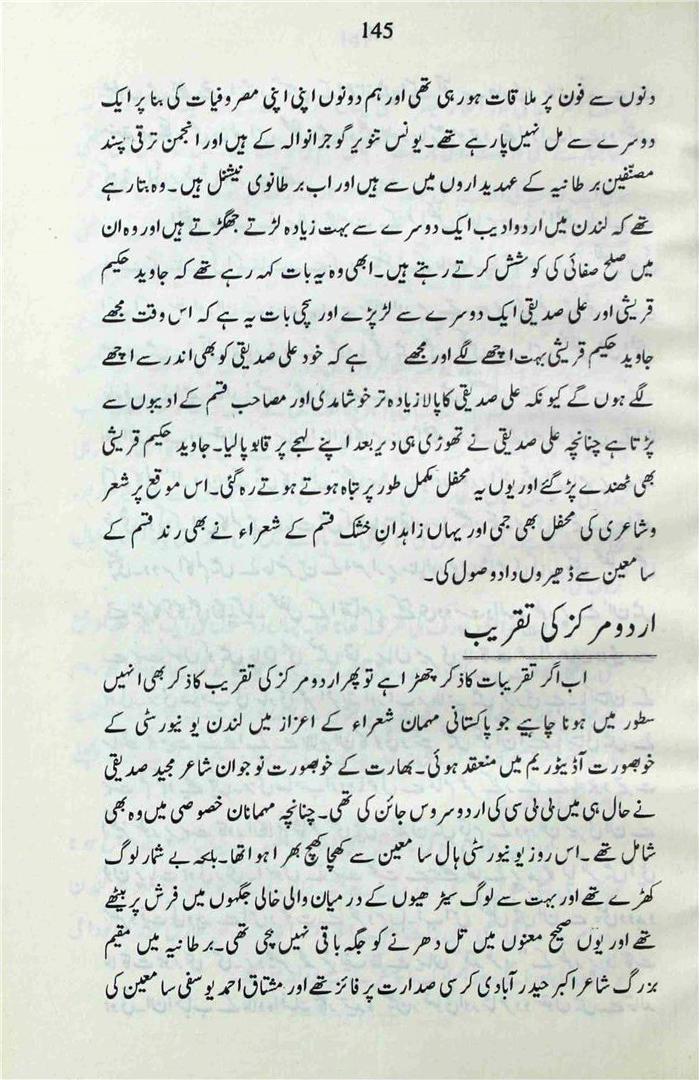 145
دنوں سے فون پر ملاقات ہو رہی تھی اور ہم دونوں اپنی اپنی مصروفیات کی بنا پر ایک
دوسرے سے مل نہیں پا رہے تھے۔ یونس تنویر گوجرانوالہ کے ہیں اور انجمن ترقی پسند
مصنّفین برطانیہ کے عہدیداروں میں سے ہیں اور اب برطانوی نیشنل ہیں۔ وہ بتا رہے
تھے کہ لندن میں اردو ادیب ایک دوسرے سے بہت زیادہ لڑتے جھگڑتے ہیں اور وہ ان
میں صلح صفائی کی کوشش کرتے رہتے ہیں۔ ابھی وہ یہ بات کہہ رہے تھے کہ جاوید حکیم
قریشی اور علی صدیقی ایک دوسرے سے لڑ پڑے اور سچی بات یہ ہے کہ اس وقت مجھے
جاوید حکیم قریشی بہت اچھے لگے اور مجھے ہے کہ خود علی صدیقی کو بھی اندر سے اچھے
لگے ہوں گے کیونکہ علی صدیقی کا پالا زیادہ تر خوشامدی اور مصاحب قسم کے ادیبوں سے
پڑتا ہے چنانچہ علی صدیقی نے تھوڑی ہی دیر بعد اپنے لہجے پر قابو پا لیا۔ جاوید حکیم قریشی
بھی ٹھنڈے پڑ گئے اور یوں یہ محفل مکمل طور پر تباہ ہوتے ہوتے رہ گئی۔ اس موقع پر شعر
و شاعری کی محفل بھی جمی اور یہاں زاہدانِ خشک قسم کے شعراء نے بھی رند قسم کے
سامعین سے ڈھیروں داد وصول کی۔
اردو مرکز کی تقریب
اب اگر تقریبات کا ذکر چھڑا ہے تو پھر اردو مرکز کی تقریب کا ذکر بھی انہیں
سطور میں ہونا چاہیے جو پاکستانی مہمان شعراء کے اعزاز میں لندن یونیورسٹی کے
خوبصورت آڈیٹوریم میں منعقد ہوئی۔ بھارت کے خوبصورت نوجوان شاعر مجید صدیقی
نے حال ہی میں بی بی سی کی اردو سروس جائن کی تھی۔ چنانچہ مہمانان خصوصی میں وہ بھی
شامل تھے۔ اس روز یونیورسٹی ہال سامعین سے کھچا کھچ بھرا ہوا تھا۔ بلکہ بے شمار لوگ
کھڑے تھے اور بہت سے لوگ سیڑھیوں کے درمیان والی خالی جگہوں میں فرش پر بیٹھے
تھے اور یوں صحیح معنوں میں تل دھرنے کو جگہ باقی نہیں بچی تھی۔ برطانیہ میں مقیم
بزرگ شاعر اکبر حیدر آبادی کرسی صدارت پر فائز تھے اور مشتاق احمد یوسفی سامعین کی